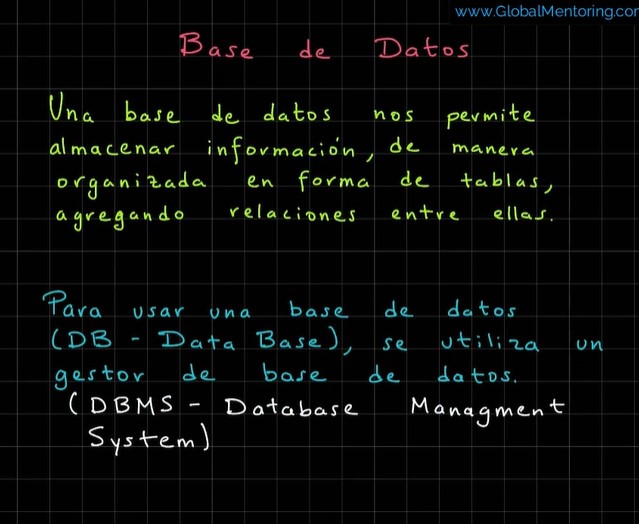 www.GlobalMentoring.com
Base de Datos
Una base de datos nos permite
almacenar información, de manera
organizada en forma de tablas,
agregando relaciones entre ellas.
Para usar una base de datos
(DB - Data Base), se utiliza un
gestor de base de datos.
(DBMS - Database Managment
System)